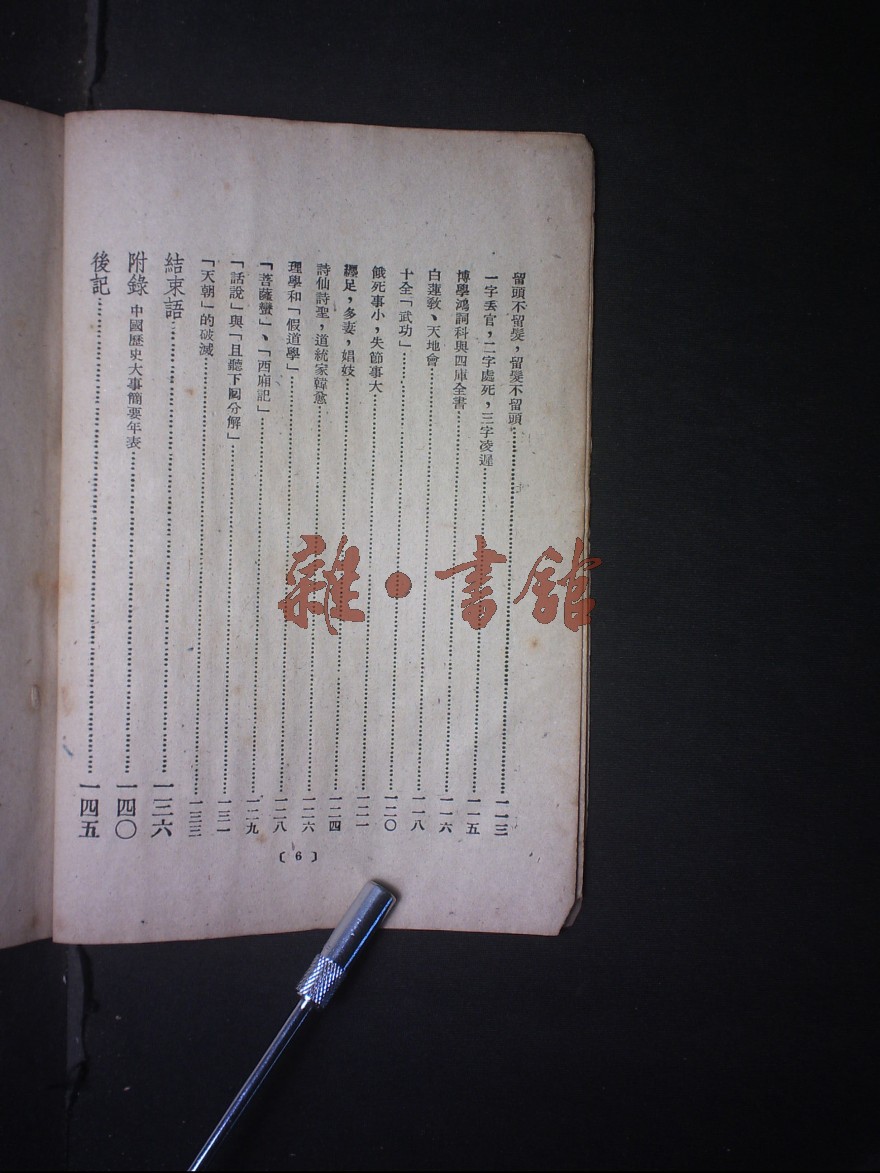 留頭不留髮，留髮不留頭……一一三
一字丟官，二字處死，三字凌遲……一一五
博學鴻詞科與四庫全書……一一六
白蓮教、天地會……一一八
十全「武功」……一二〇
餓死事小，失節事大……一二一
纏足，多妻，娼妓……一二四
詩仙詩聖，道統家韓愈……一二六
理學和「假道學」……一二八
「菩薩蠻」、「西廂記」……一二九
「話說」與「且聽下回分解」……一三一
「天朝」的破滅……一三三
結束語……一三六
附錄 中國歷史大事簡要年表……一四〇
後記……一四五
〔6〕
雜·書館